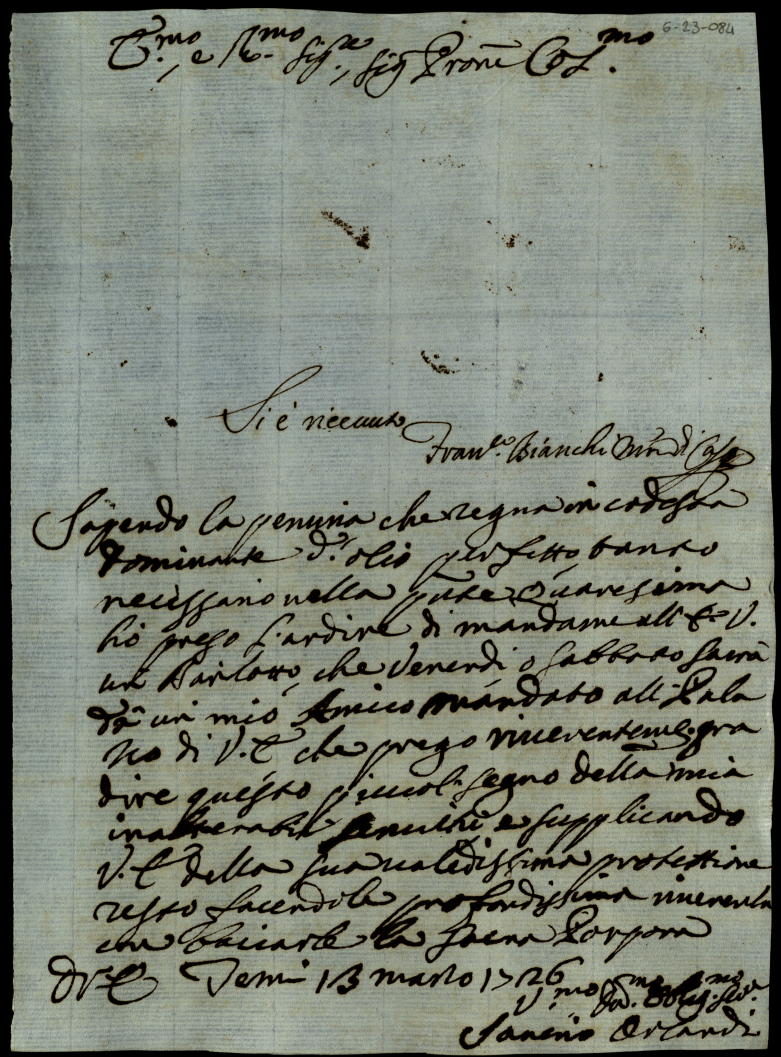 6-23-084
E.mo e R.mo Sig.re, Sig. Prone Col.mo
Si è riceuuto
Fran.co Bianchi di Casa
Sapendo la penuria che regna in codesta
Dominante d'olio perfetto, tanto
necessario nella pnte Quaresima
hò preso l'ardire di mandarne all' E. V.
un Barlotto, che Venerdì o Sabbato sarà
da un mio Amico mandato all Pala
zzo di V. E. che prego riuerenteme. gra
dire questo piccol segno della mia
inalterabil seruitù e supplicando
V. E. della sua ualidissima protettione
resto facendole profondissima riuerenza
con baciarle la Sacra Porpora
Di V. E. Terni 13 marzo 1726
V.mo Obblig.mo Ser.
Orlandi